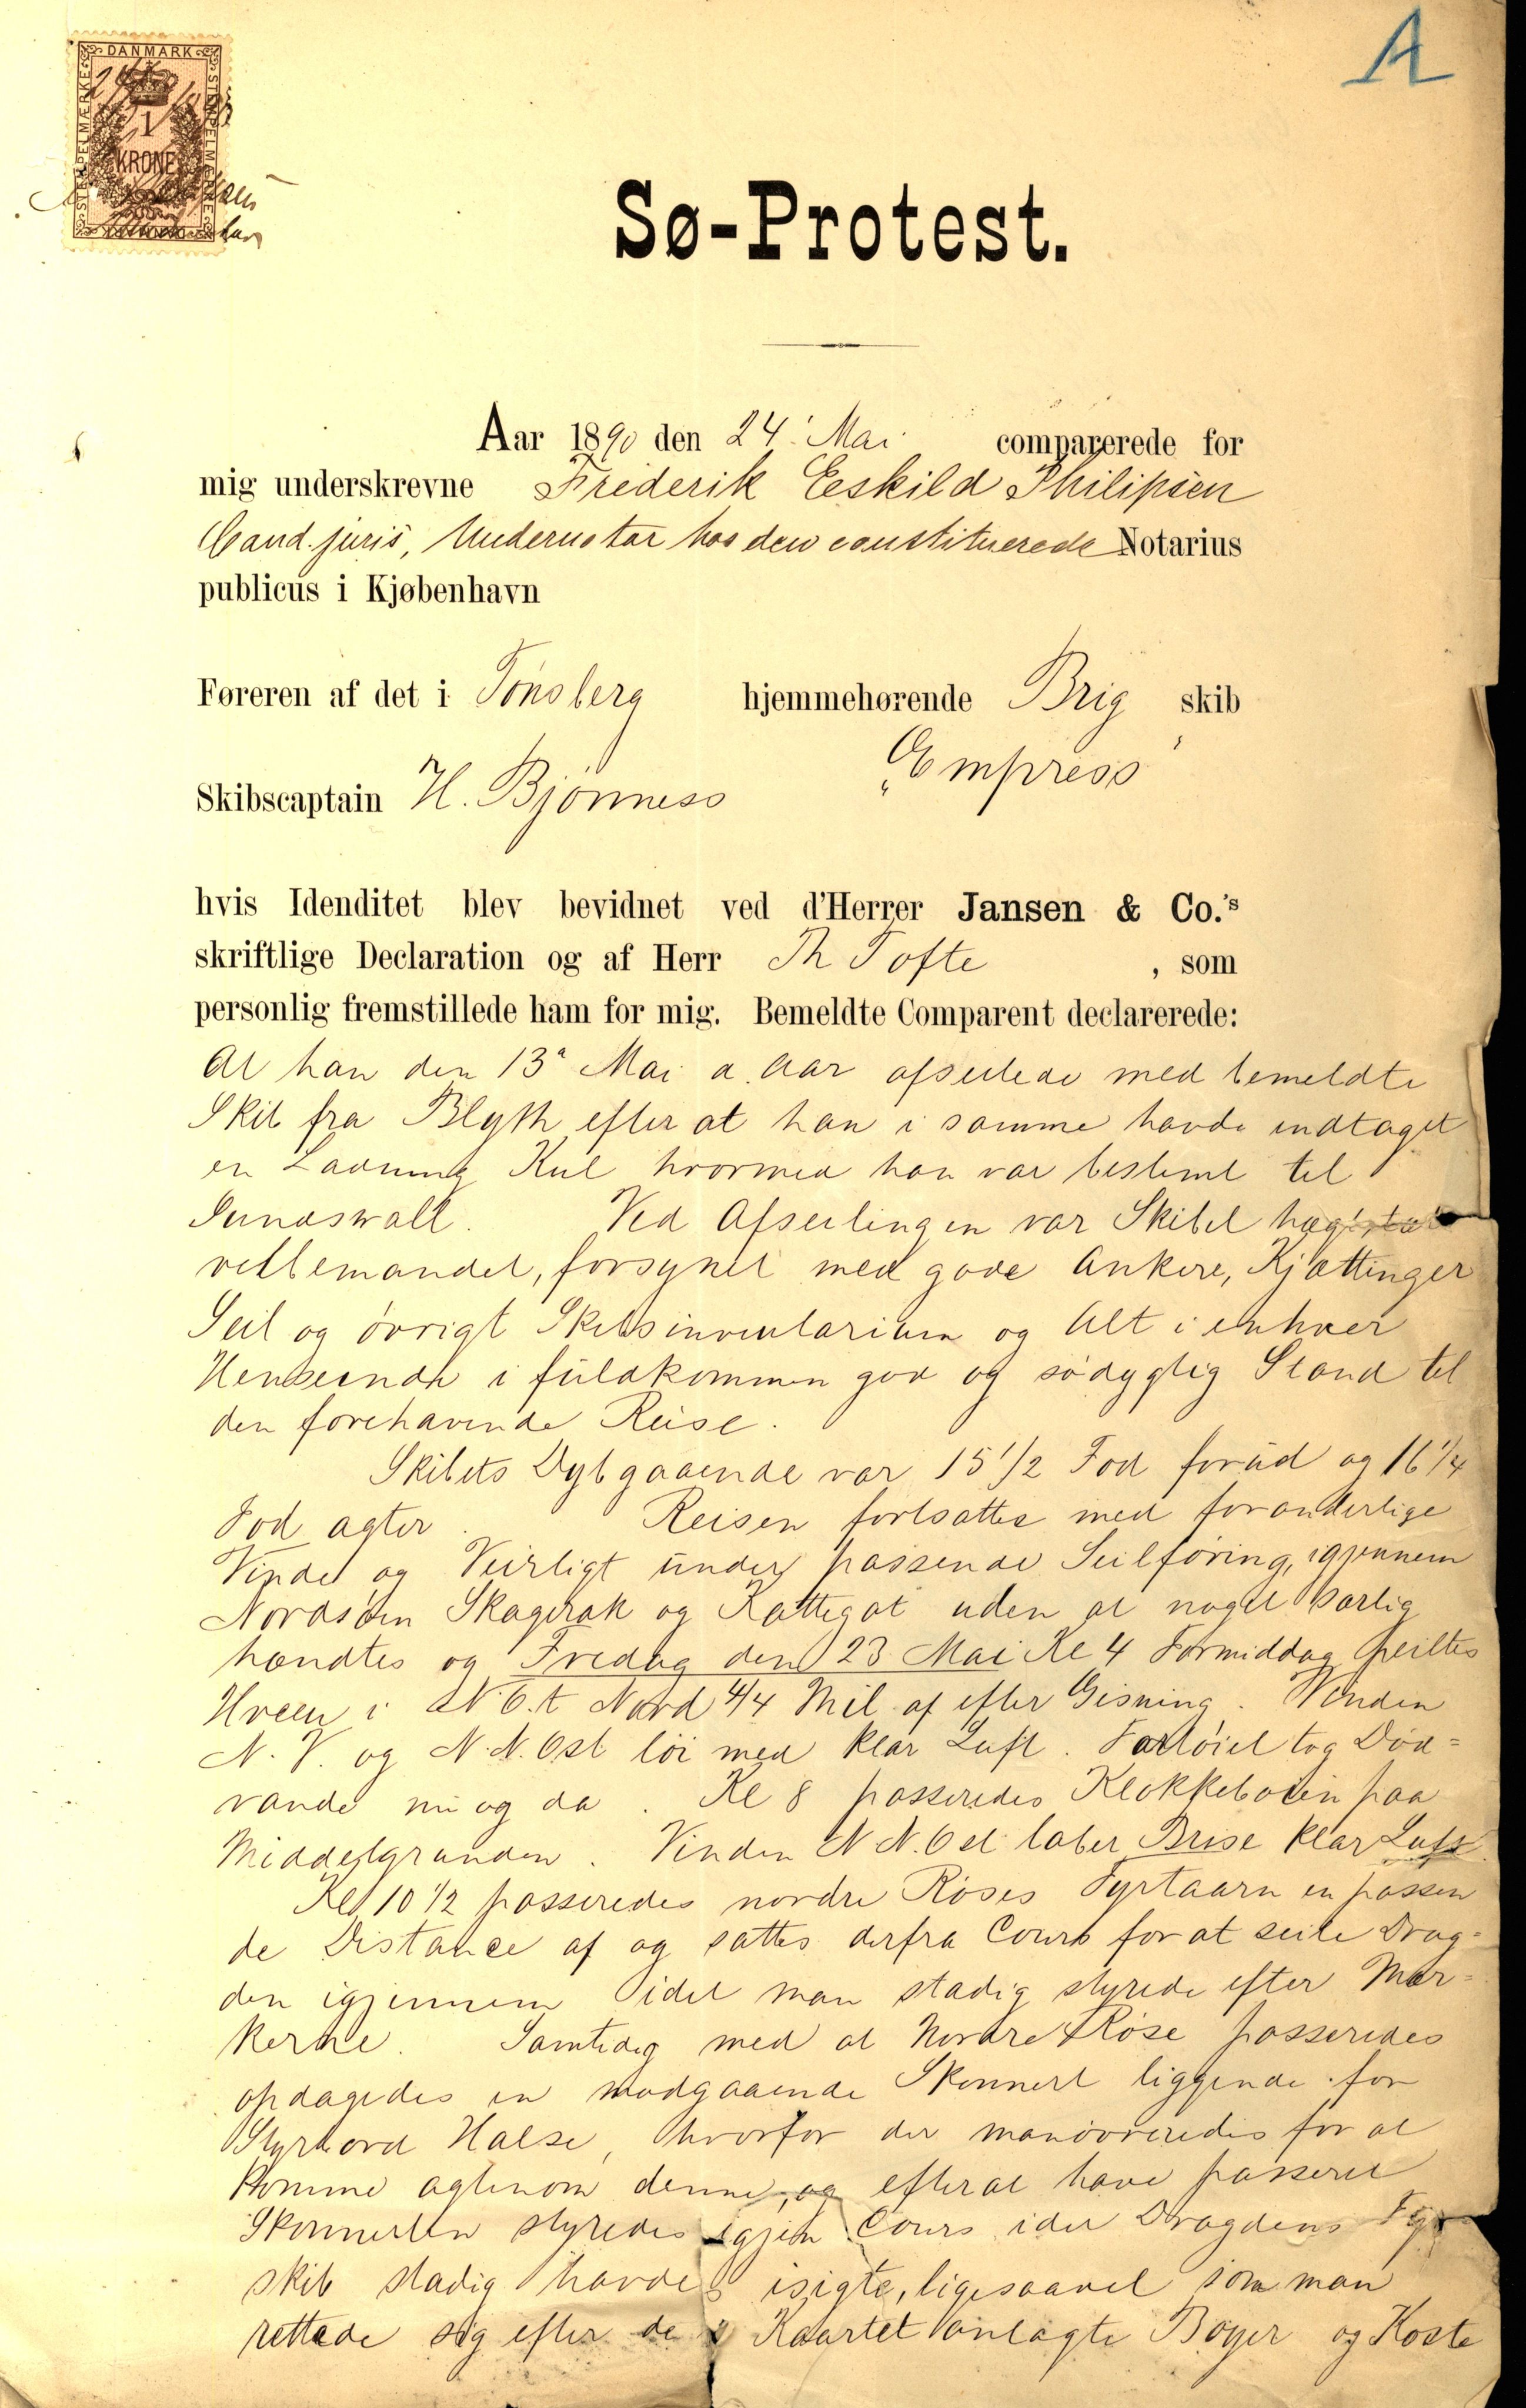 A
DANMARK
STEMPELMÆRKE
STEMPELMÆRKE
1
KRONE
Sø-Protest.
Aar 1890 den 24' Mai comparerede for
mig underskrevne Frederik Eeskild Philipsen
Cand. juris, Undernotar hos den constituerede Notarius
publicus i Kjøbenhavn
Føreren af det i Tønsberg hjemmehørende Brig skib
"Empress"
Skibscaptain H. Bjönness
hvis Idenditet blev bevidnet ved d'Herrer Jansen & Co.'s
skriftlige Declaration og af Herr Th Tofte , som
personlig fremstillede ham for mig. Bemeldte Comparent declarerede:
At han den 13de Mai d. Aar afseilede med bemeldte
Skib fra Blyth efter at han i samme havde indtaget
en Ladning Kul hvormed han var bestemt til
Sundswall. Ved Afseilingen var Skibet
velbemandet, forsynet med gode Ankere, Kjættinger
Seil og övrigt Skibsinventarium og Alt i enhver
Henseende i fuldkommen god og södygtig Stand til
den forehavende Reise.
Skibets Dybgaaende var 15 1/2 Fod forud og 16 1/4
Fod agter. Reisen fortsattes med foranderlige
Vinde og Veirligt under passende Seilföring, igjennem
Nordsöen Skagerak og Kattegat uden at noget særlig
hændtes og Fredag den 23 Mai Kl 4 Formiddag peiltes
Hveen i N.O.t Nord 4/4 Mil af efter Gisning. Vinden
N.V. og N.N.Ost löi med klar Luft. Fartöiet tog Död=
vande nu og da. Kl 8 passeredes Klokkeboien paa
Middelgrunden. Vinden N N.Ost laber Brise klar Luft
Kl 10 1/2 passeredes nordre Röses Fyrtaarn en passen
de Distance af og sattes derfra Cours for at seile Drog=
den igjennem idet man stadig styrede efter Mær=
kerne. Samtidig med at Nordre Röse passeredes
opdagedes en modgaaende Skonnert liggende for
Styrbord Halse, hvorfor der manövreredes for at
komme agtenom denne, og efterat have passeret
Skonnerten styredes igjen Cours ider Drogdens Fyr
skib stadig havdes isigte, ligesaavel som man
rettede sig efter de i Kaartet anlagte Böyer og Koste